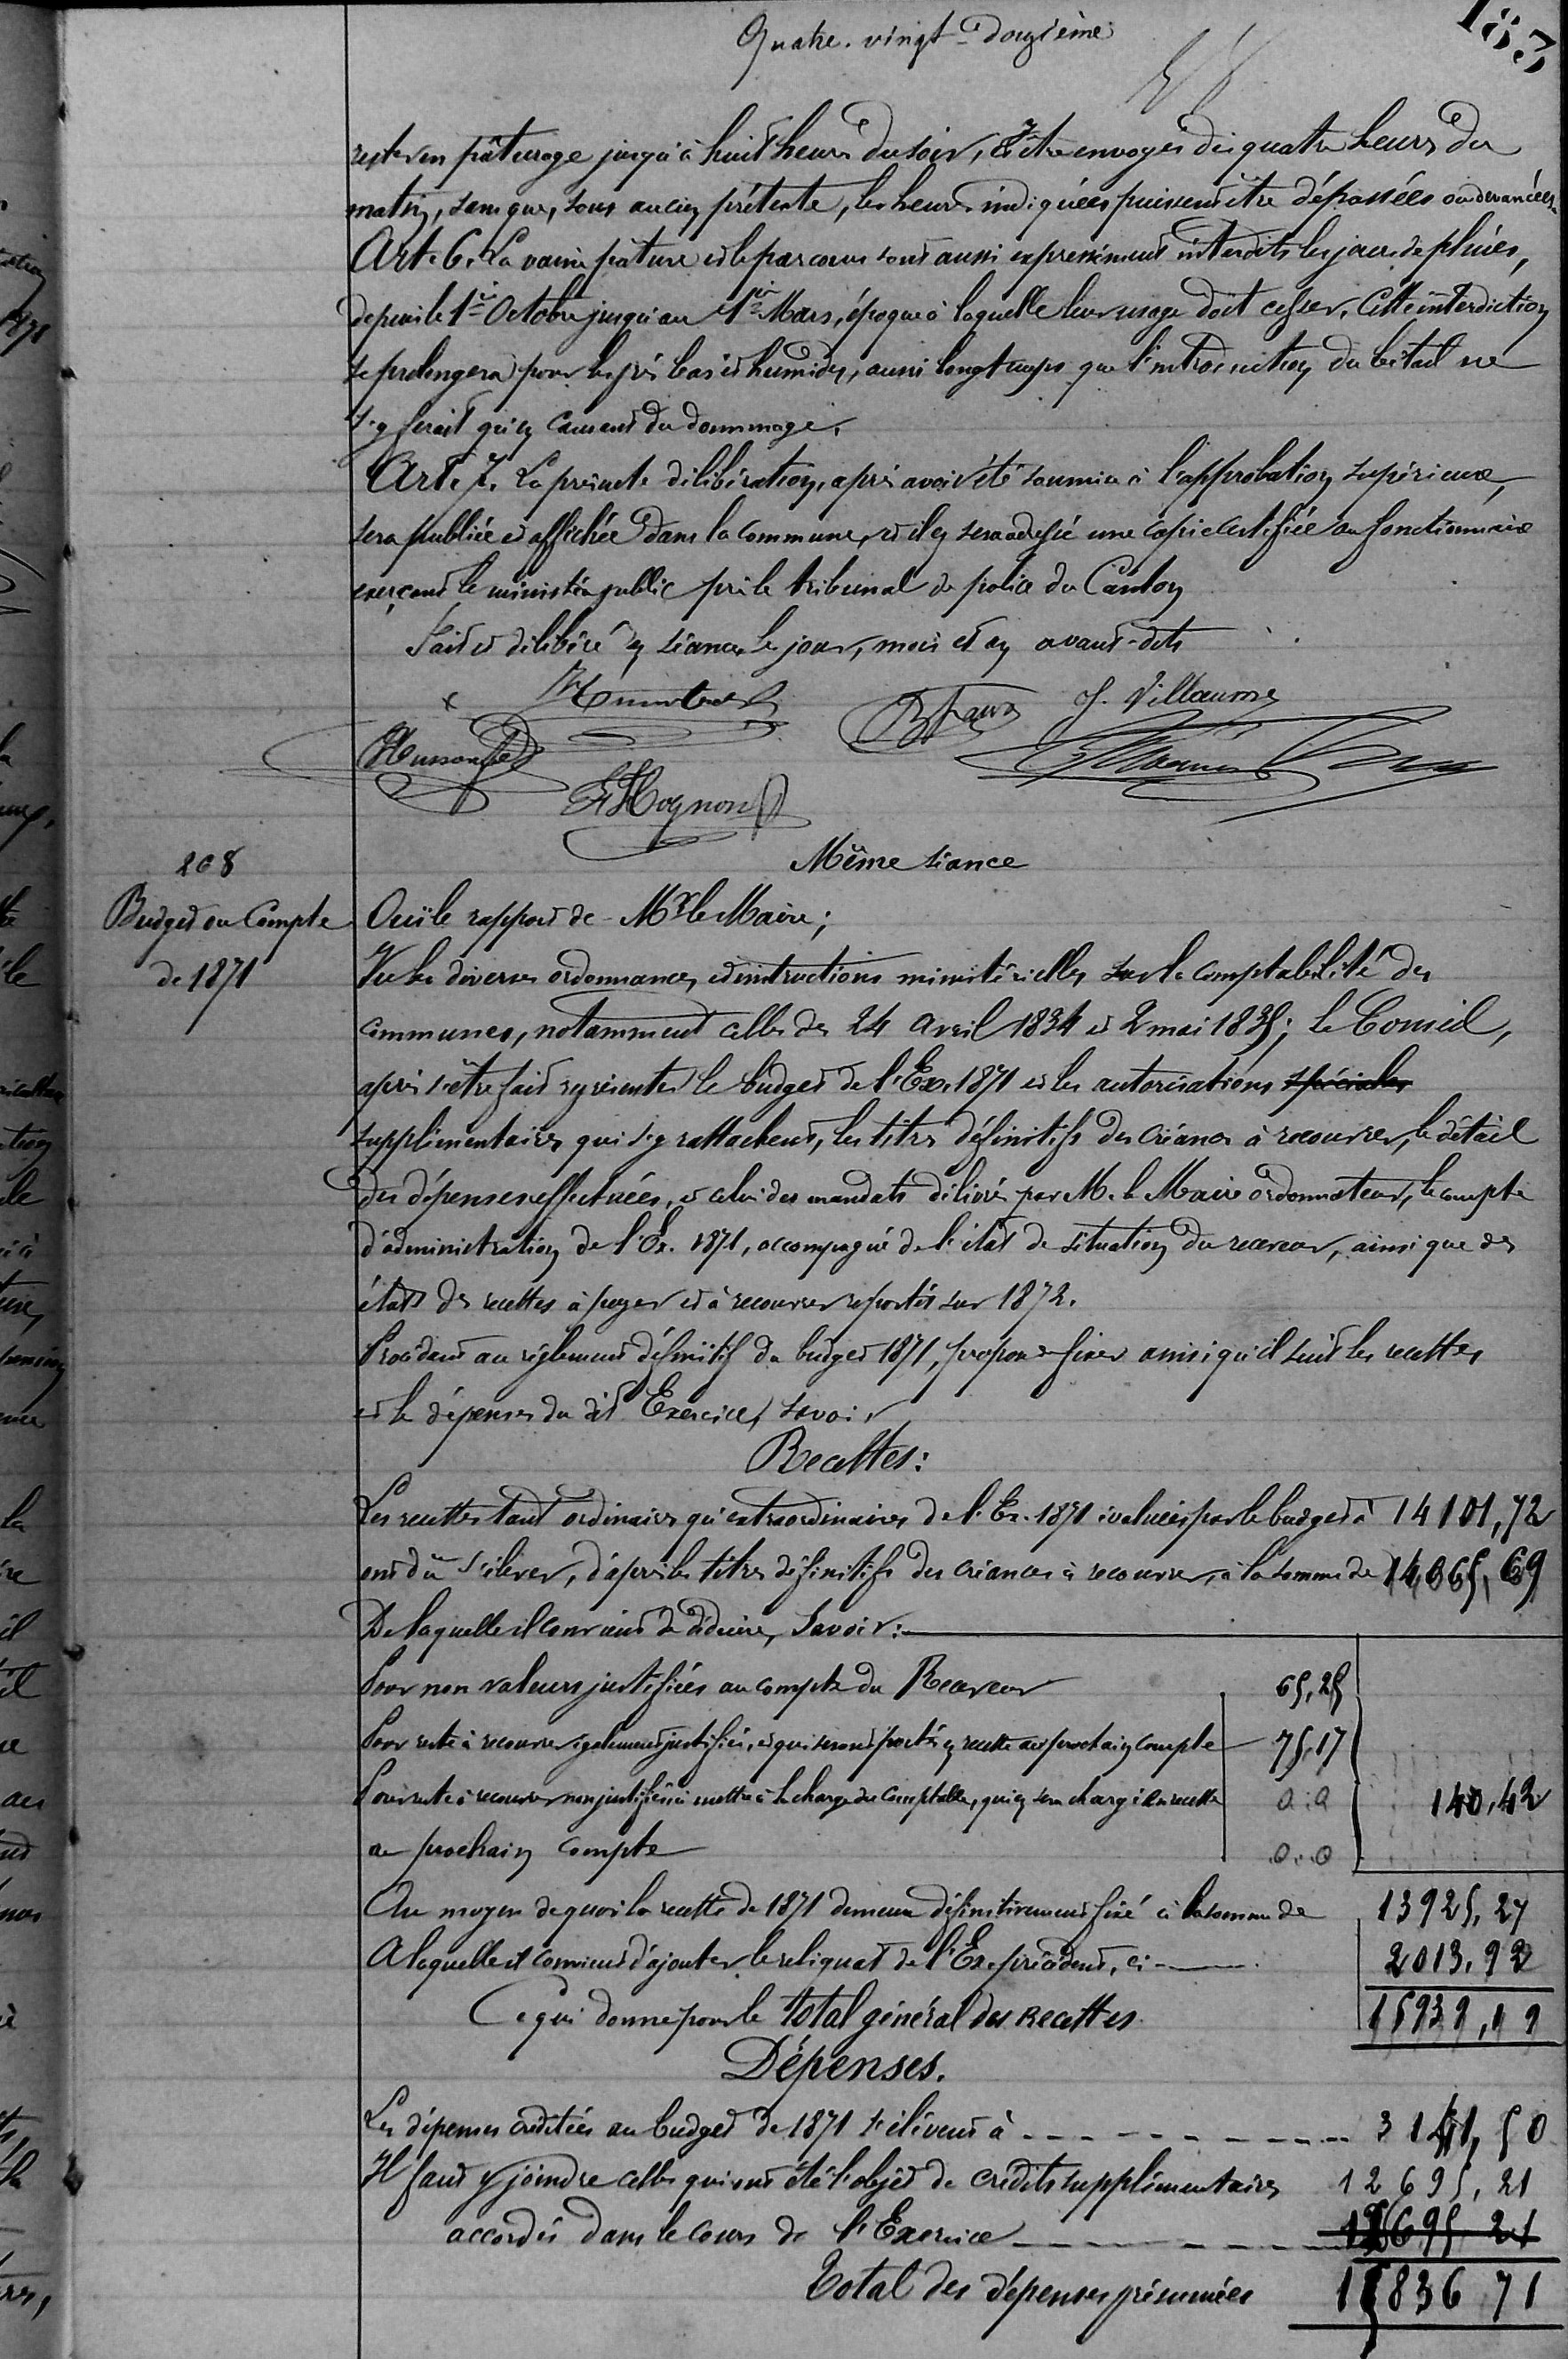 Quatre-vingt-douzième
183
rester en pâturage jusqu'à huit heures du soir, & être envoyés dès quatre heures du
matin, sans que, sous aucun prétexte, les heures indiquées puissent être dépassées ou devancées.
Art. 6. La vaine pâture et le parcours sont aussi expressément interdits les jours de pluies,
depuis le 1er Octobre jusqu'au 1er Mars, époque à laquelle leur usage doit cesser. Cette interdiction
se prolongera pour les prés bas et humides, aussi longtemps que l'introduction du bétail ne
s'y ferait qu'en causant du dommage.
Art. 7. La présente délibération, après avoir été soumise à l'approbation supérieure,
sera publiée et affichée dans la commune, et il en sera adressé une copie certifiée au fonctionnaire
exerçant le ministère public près le tribunal de police du Canton
Fait et délibéré en séance, le jour, mois et an avant-dits
J. Villaume
Husson
Hognon
Même séance
208
Budget ou Compte
de 1871
Ouï le rapport de Mr le Maire;
Vu les diverses ordonnances et instructions ministérielles sur la comptabilité des
communes, notamment celles des 24 avril 1834 et 2 mai 1835; le Conseil,
après s'être fait représenter le budget de l'Ex. 1871 et les autorisations spéciales
supplémentaires qui s'y rattachent, les titres définitifs des créances à recouvrer, le détail
des dépenses effectuées, et celui des mandats délivrés par M. le Maire ordonnateur, le compte
d'administration de l'Ex. 1871, accompagné de l'état de situation du receveur, ainsi que des
états des recettes à payer et à recouvrer reportés sur 1872.
Procédant au règlement définitif du budget 1871, propose de fixer ainsi qu'il suit les recettes
et les dépenses du dit Exercice, savoir
Recettes:
Les recettes tant ordinaires qu'extraordinaires de l'Ex. 1871 évaluées par le budget à 14101,72
ont dû s'élever, d'après les titres définitifs des créances à recouvrer, à la somme de 14,065,69
De laquelle il convient de déduire, savoir:
Pour non valeurs justifiées au compte du Receveur 65,25
Pour reste à recouvrer également justifiés, et qui seront portés en recette au prochain compte 75,17
Pour reste à recouvrer non justifiés à mettre à la charge du comptable, qui en sera chargé en recette 0.0 140,42
au prochain compte 0.0
Au moyen de quoi la recette de 1871 demeure définitivement fixée à la somme de 13925,27
A laquelle il convient d'ajouter le reliquat de l'Ex. précédent, ci 2013,92
Ce qui donne pour le total général des recettes 15939,19
Dépenses.
Les dépenses créditées au budget de 1871 s'élèvent à 3141,50
Il faut y joindre celles qui ont été l'objet de crédits supplémentaires 12695,21
accordés dans le cours de l'Exercice 12695 21
Total des dépenses présumées 15836 71